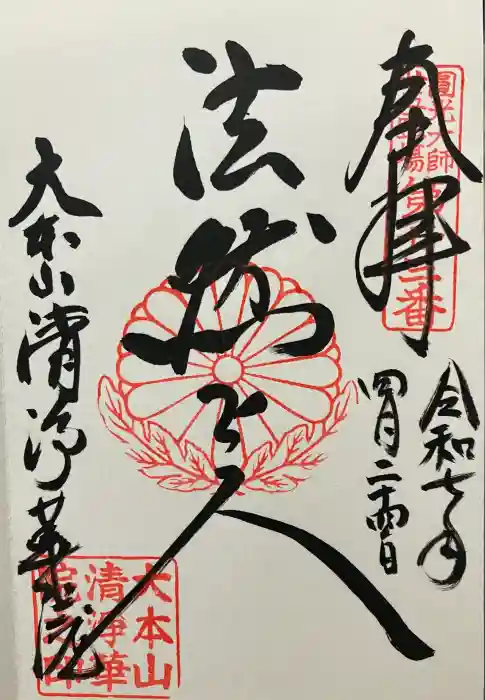 奉拝
圓光大師
廿五霊場
第廿三番
令和七年
四月二十四日
法然上人
大本山清浄華院
大本山
清淨華
院之印